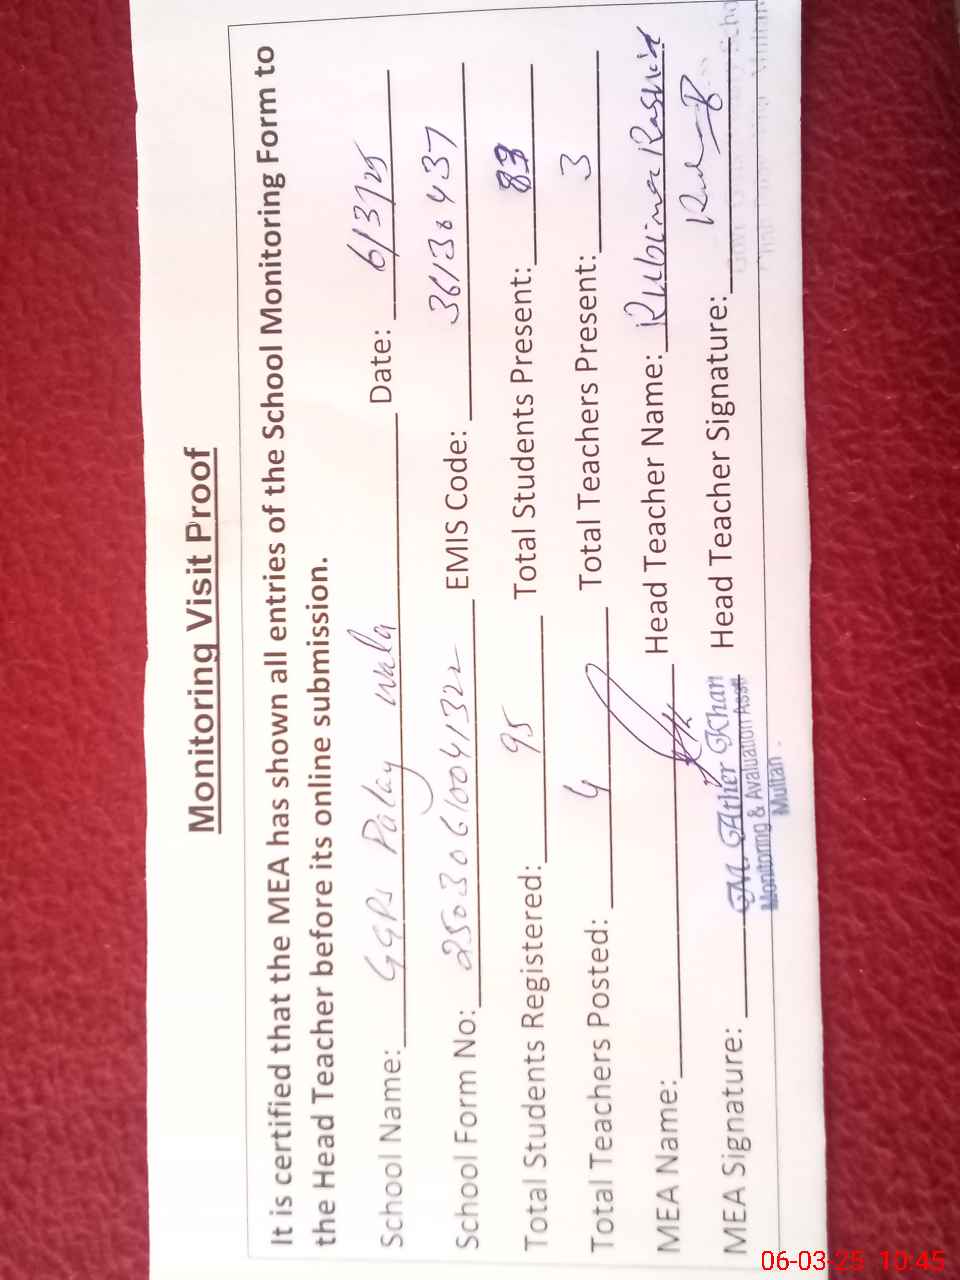 Monitoring Visit Proof
It is certified that the MEA has shown all entries of the School Monitoring Form to
the Head Teacher before its online submission.
School Name: GGPS Palay Wala Date: 6/3/25
School Form No: 25030610041322 EMIS Code: 36130437
Total Students Registered: 95 Total Students Present: 83
Total Teachers Posted: 4 Total Teachers Present: 3
MEA Name: Head Teacher Name: Rubina Rashid
MEA Signature: M. Ather Khan Head Teacher Signature:
Monitoring & Avaluation Asstt
Multan.
06-03-25 10:45